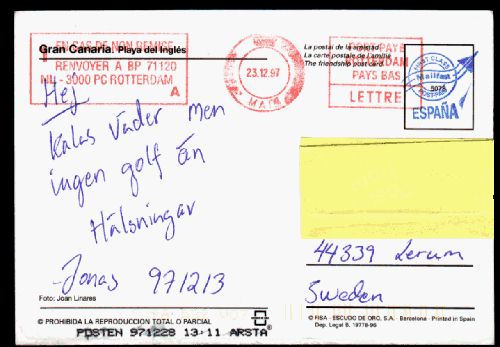 Gran Canaria. Playa del Inglés
EN CAS DE NON REMISE
RENVOYER A BP 71120
NL - 3000 PC ROTTERDAM
A
23.12.97
La postal de la amistad
La carte postale de l'amitié
The friendship postcard
PAYS BAS
LETTRE
FIRST CLASS
Mailfast
POSTPAID
5075
ESPAÑA
Hej
Kalas väder men
ingen golf än
Hälsningar
Jonas 971213
44339 Lerum
Sweden
Foto: Joan Linares
© PROHIBIDA LA REPRODUCCION TOTAL O PARCIAL
POSTEN 971228 13·11 ARSTA
© FISA - ESCUDO DE ORO, S.A. - Barcelona - Printed in Spain
Dep. Legal B. 19778-96